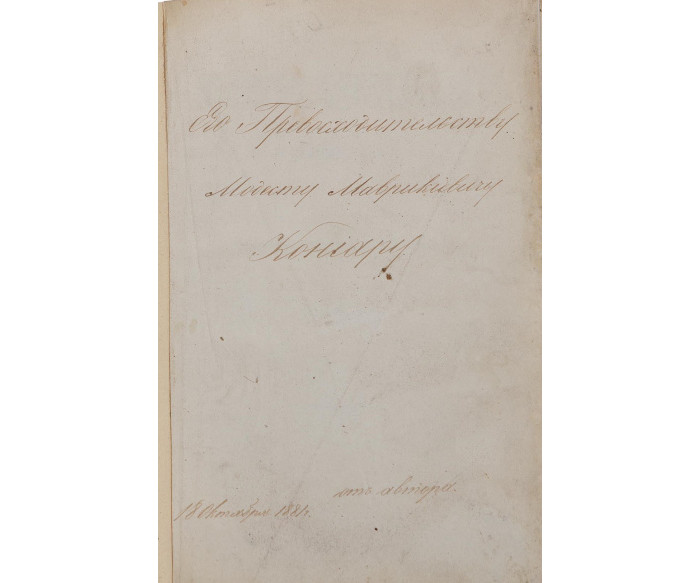 Его Превосходительству
Модесту Маврикіевичу
Коніару.
отъ автора.
18 Октября 1881г.